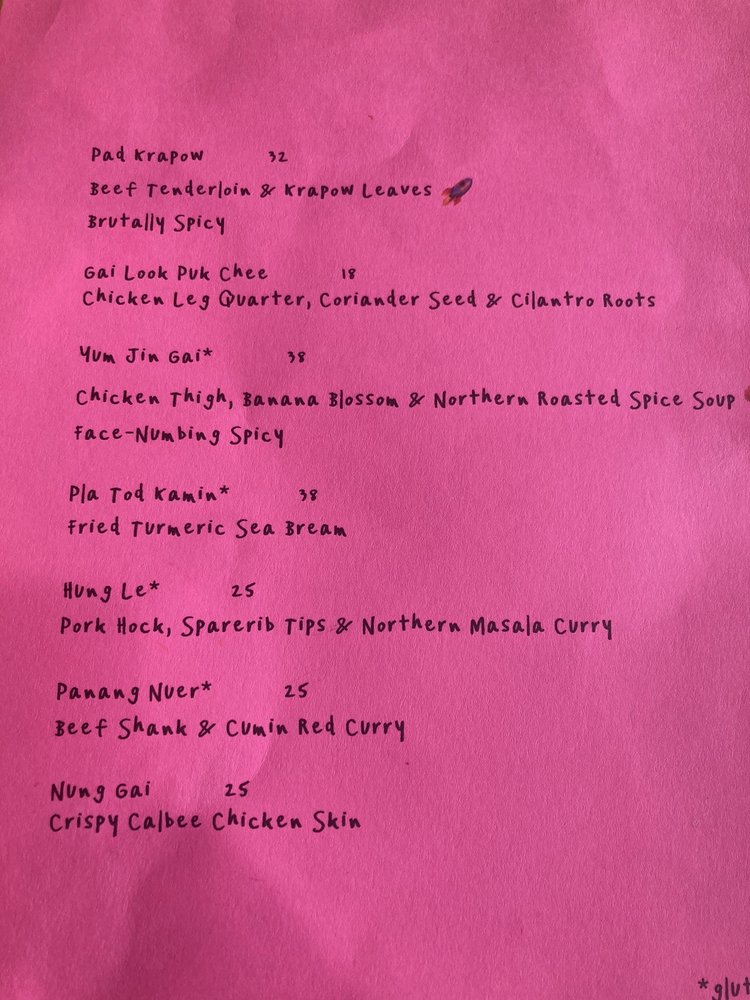 Pad Krapow 32
Beef Tenderloin & Krapow Leaves 🚀
Brutally Spicy
Gai Look Puk Chee 18
Chicken Leg Quarter, Coriander Seed & Cilantro Roots
Yum Jin Gai* 38
Chicken Thigh, Banana Blossom & Northern Roasted Spice Soup
Face-Numbing Spicy
Pla Tod Kamin* 38
Fried Turmeric Sea Bream
Hung Le* 25
Pork Hock, Sparerib Tips & Northern Masala Curry
Panang Nuer* 25
Beef Shank & Cumin Red Curry
Nung Gai 25
Crispy Calbee Chicken Skin
*glut